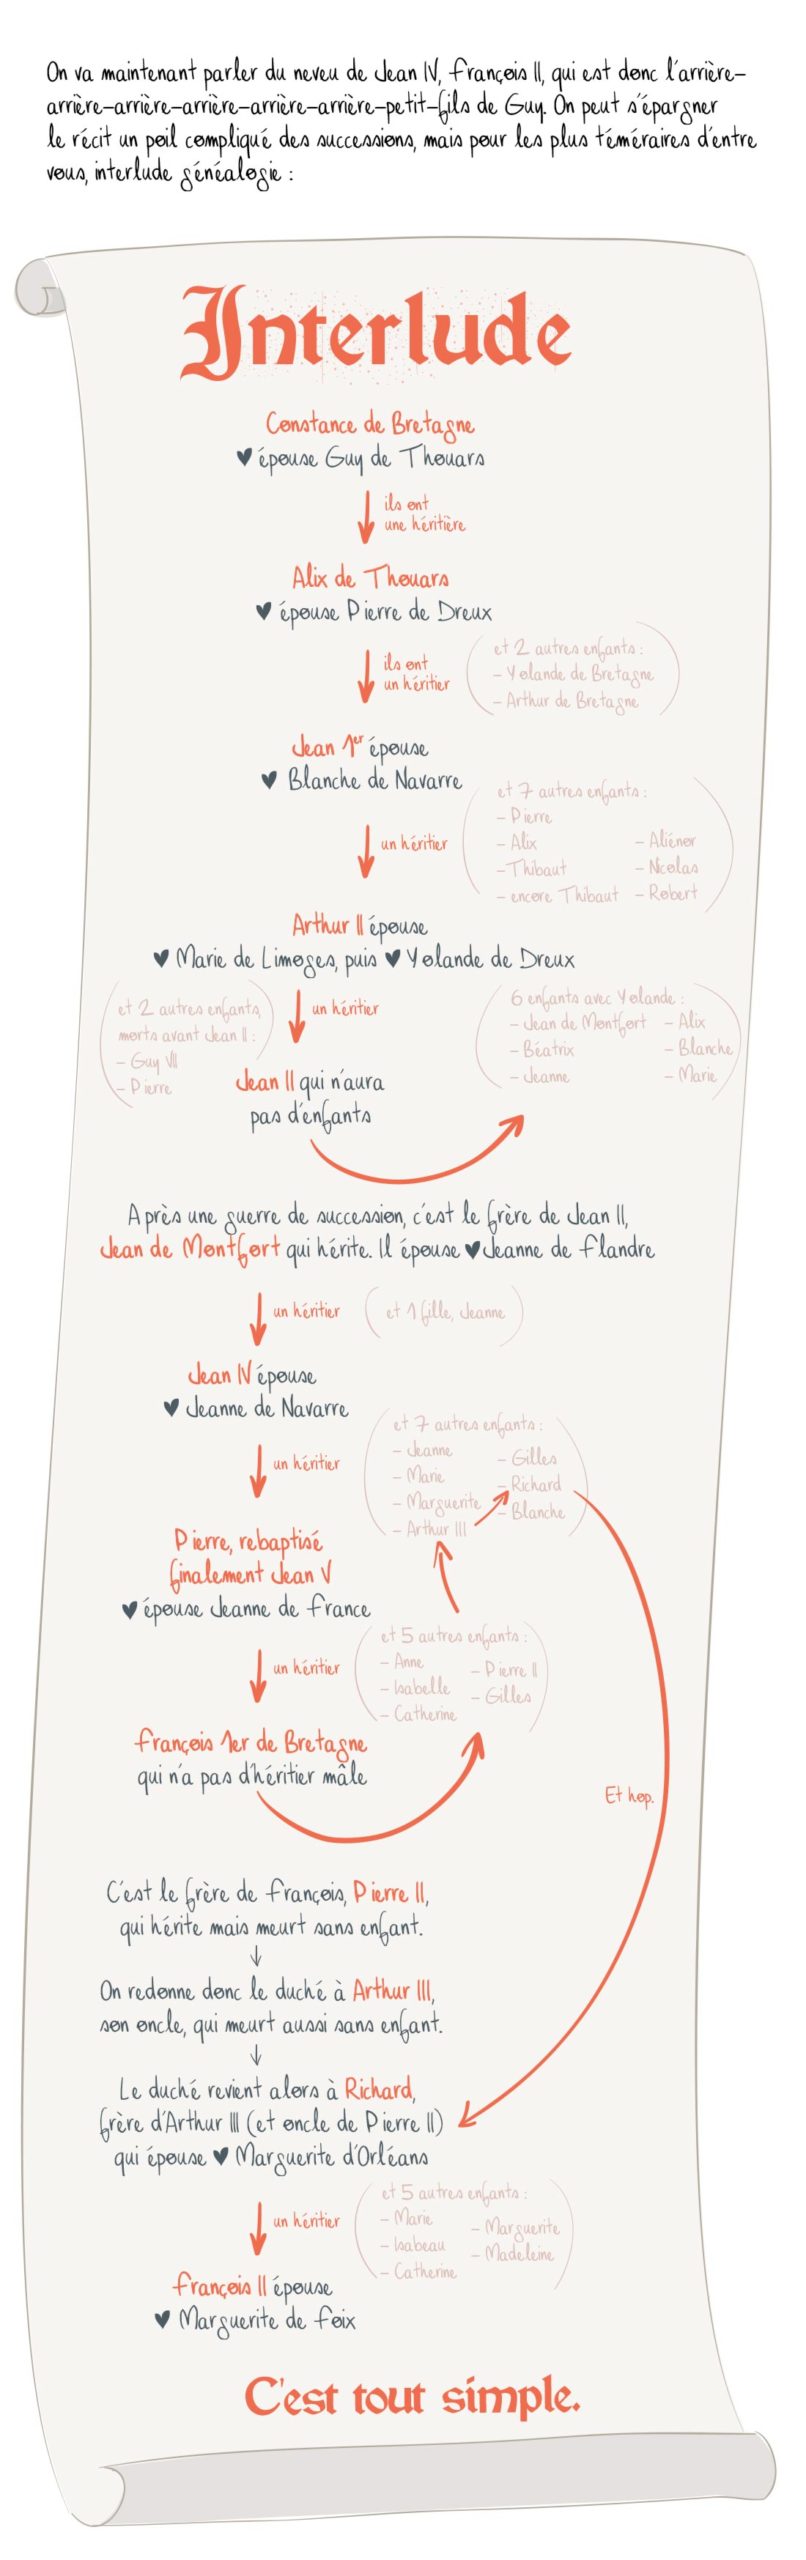 On va maintenant parler du neveu de Jean IV, François II, qui est donc l'arrière-
arrière-arrière-arrière-arrière-arrière-petit-fils de Guy. On peut s'épargner
le récit un poil compliqué des successions, mais pour les plus téméraires d'entre
vous, interlude généalogie :
Interlude
Constance de Bretagne
♥ épouse Guy de Thouars
ils ont
une héritière
Alix de Thouars
♥ épouse Pierre de Dreux
ils ont
un héritier
et 2 autres enfants :
- Yolande de Bretagne
- Arthur de Bretagne
Jean 1er épouse
♥ Blanche de Navarre
un héritier
et 7 autres enfants :
- Pierre
- Alix
- Thibaut
- encore Thibaut
- Aliénor
- Nicolas
- Robert
Arthur II épouse
♥ Marie de Limoges, puis ♥ Yolande de Dreux
et 2 autres enfants,
morts avant Jean II :
- Guy VII
- Pierre
un héritier
6 enfants avec Yolande :
- Jean de Montfort
- Béatrix
- Jeanne
- Alix
- Blanche
- Marie
Jean II qui n'aura
pas d'enfants
Après une guerre de succession, c'est le frère de Jean II,
Jean de Montfort qui hérite. Il épouse ♥ Jeanne de Flandre
un héritier
et 1 fille, Jeanne
Jean IV épouse
♥ Jeanne de Navarre
un héritier
et 7 autres enfants :
- Jeanne
- Marie
- Marguerite
- Arthur III
- Gilles
- Richard
- Blanche
Pierre, rebaptisé
finalement Jean V
♥ épouse Jeanne de France
un héritier
et 5 autres enfants :
- Anne
- Isabelle
- Catherine
- Pierre II
- Gilles
François 1er de Bretagne
qui n'a pas d'héritier mâle
Et hop.
C'est le frère de François, Pierre II,
qui hérite mais meurt sans enfant.
↓
On redonne donc le duché à Arthur III,
son oncle, qui meurt aussi sans enfant.
↓
Le duché revient alors à Richard,
frère d'Arthur III (et oncle de Pierre II)
qui épouse ♥ Marguerite d'Orléans
un héritier
et 5 autres enfants :
- Marie
- Isabeau
- Catherine
- Marguerite
- Madeleine
François II épouse
♥ Marguerite de Foix
C'est tout simple.